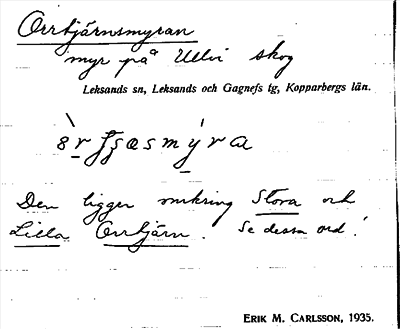 Orrtjärnsmyran
myr på Ullvi skog
Leksands sn, Leksands och Gagnefs tg, Kopparbergs län.
Den ligger omkring Stora och
Lilla Orrtjärn. Se dessa ord!
ERIK M. CARLSSON, 1935.